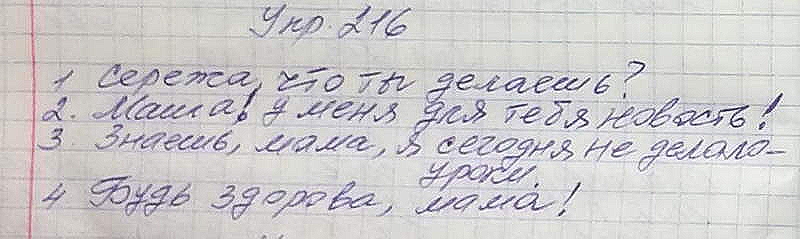 Упр. 216
1 Сережа, что ты делаешь?
2. Маша! у меня для тебя новость!
3. Знаешь, мама, я сегодня не делало-
уроки.
4 Будь здорова, мама!